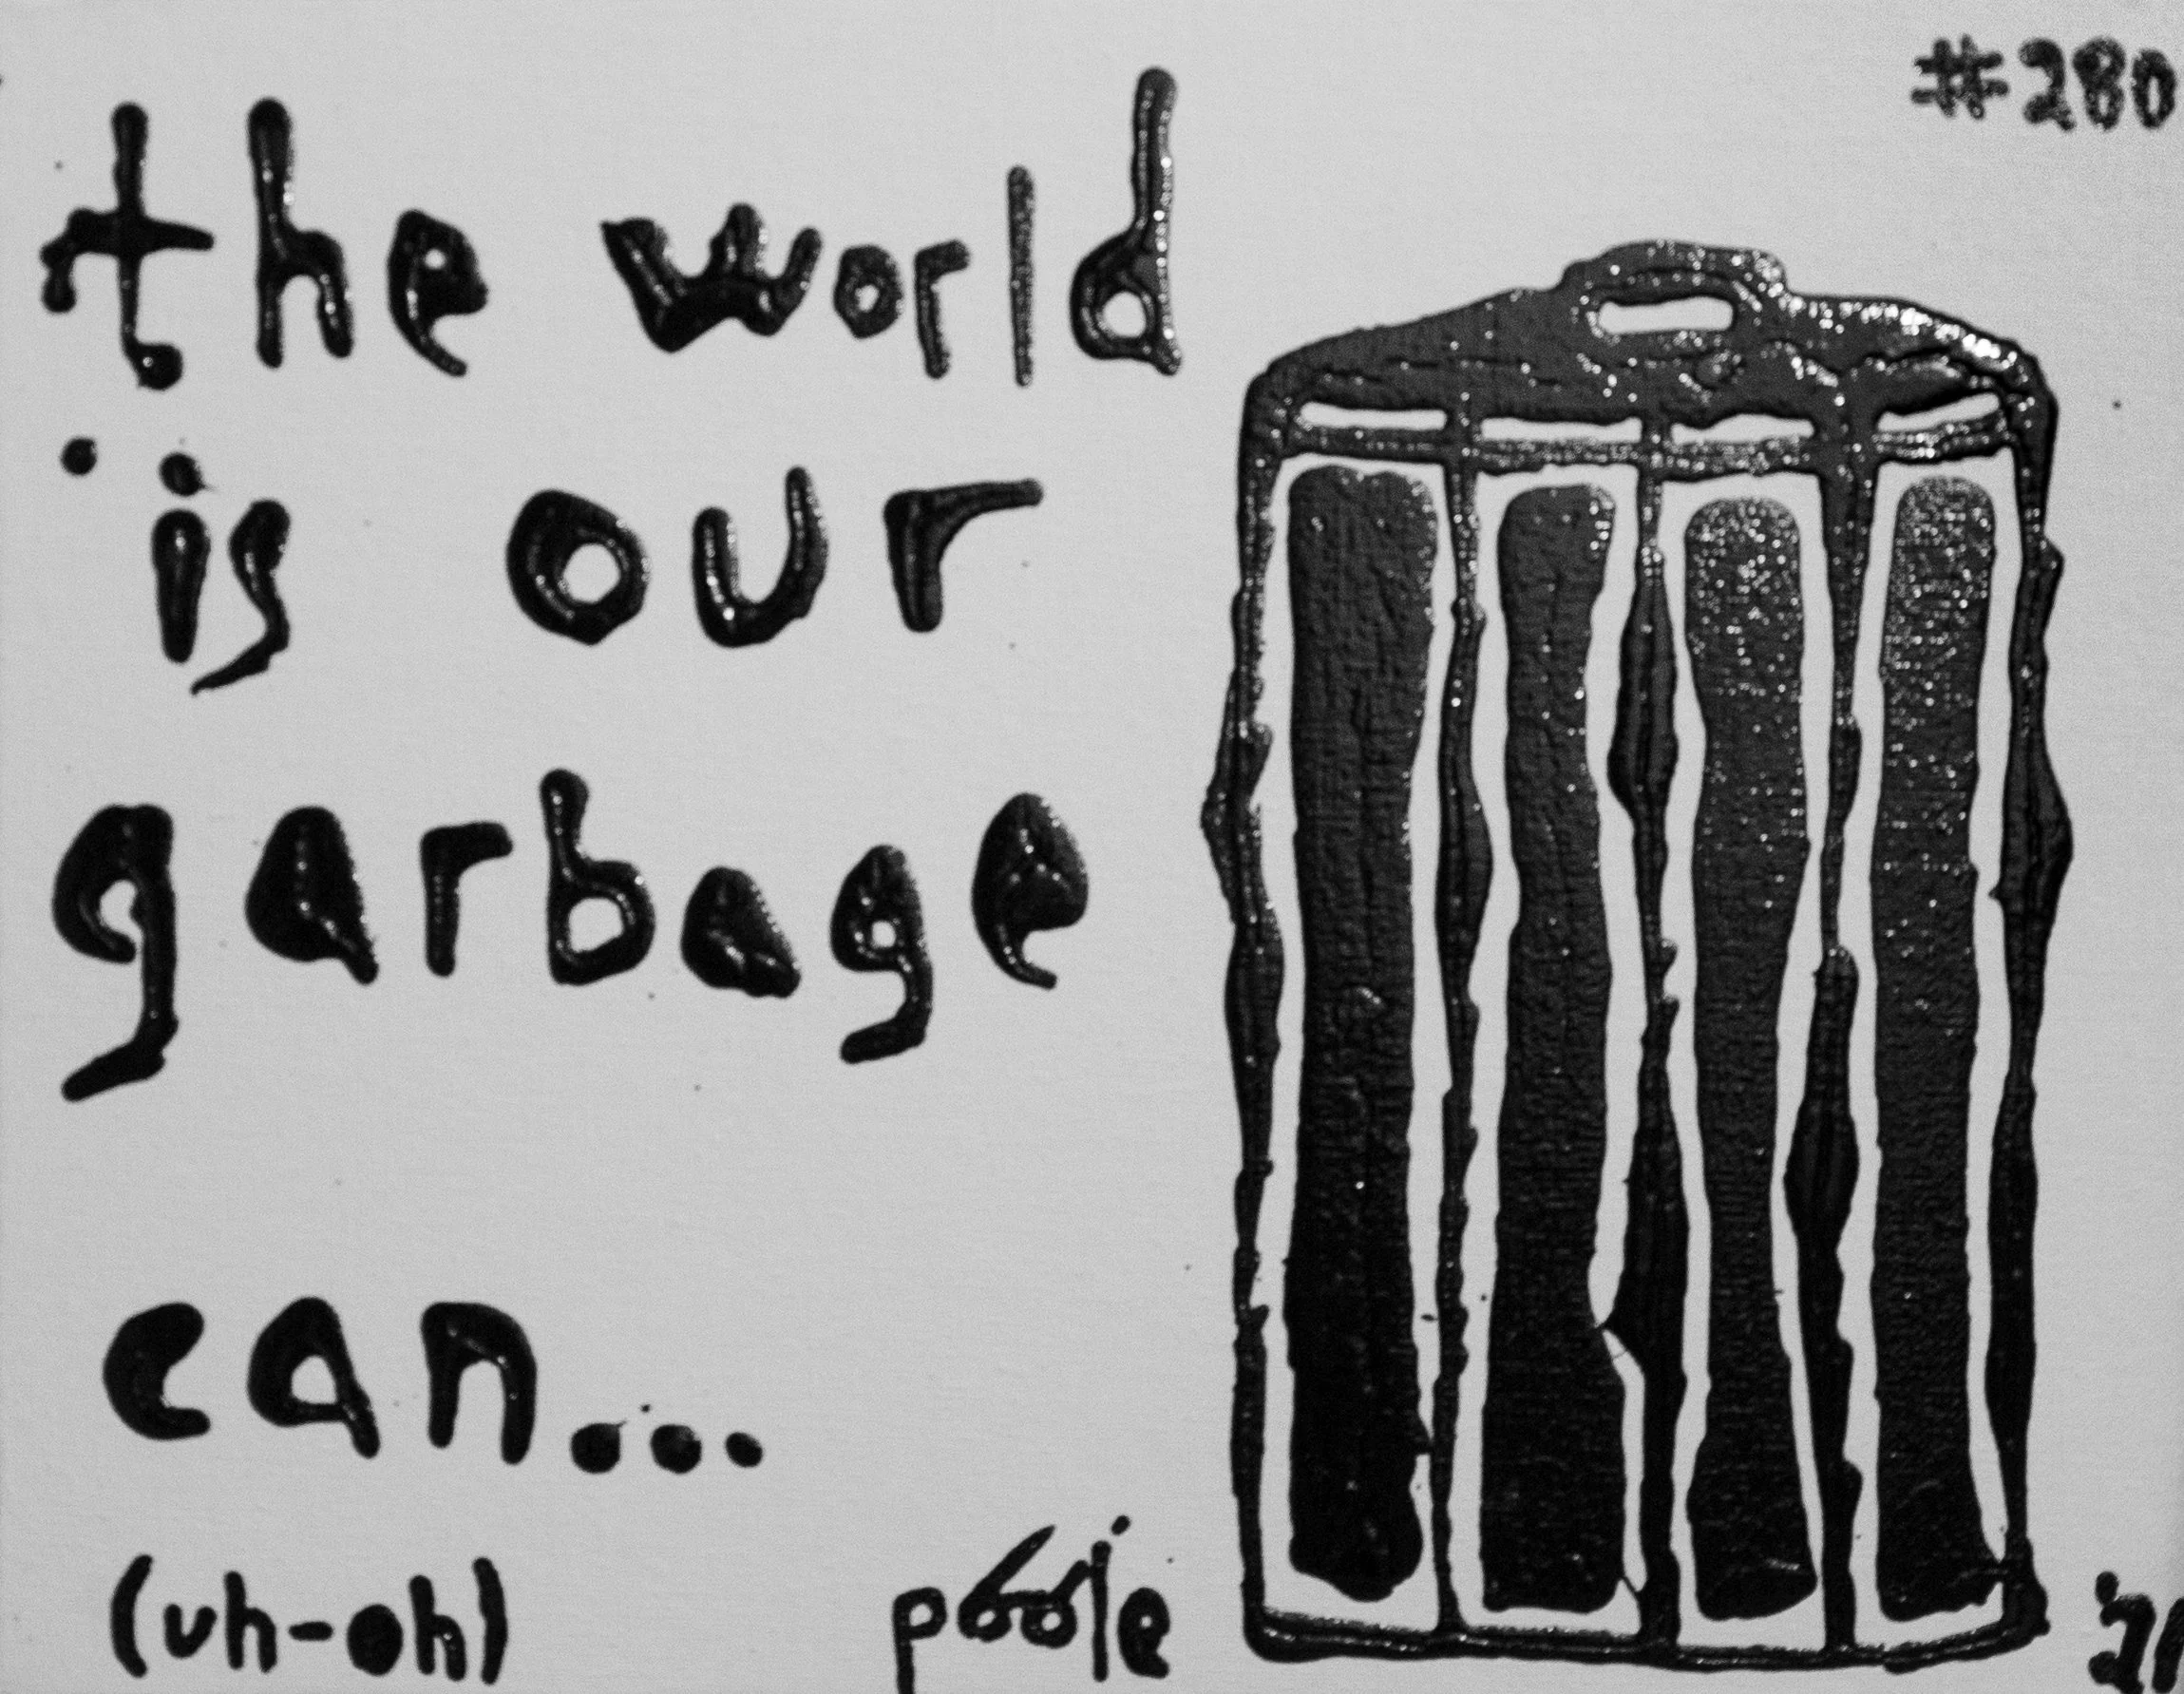 #280
the world
is our
garbage
can...
(uh-oh)
poole
'21